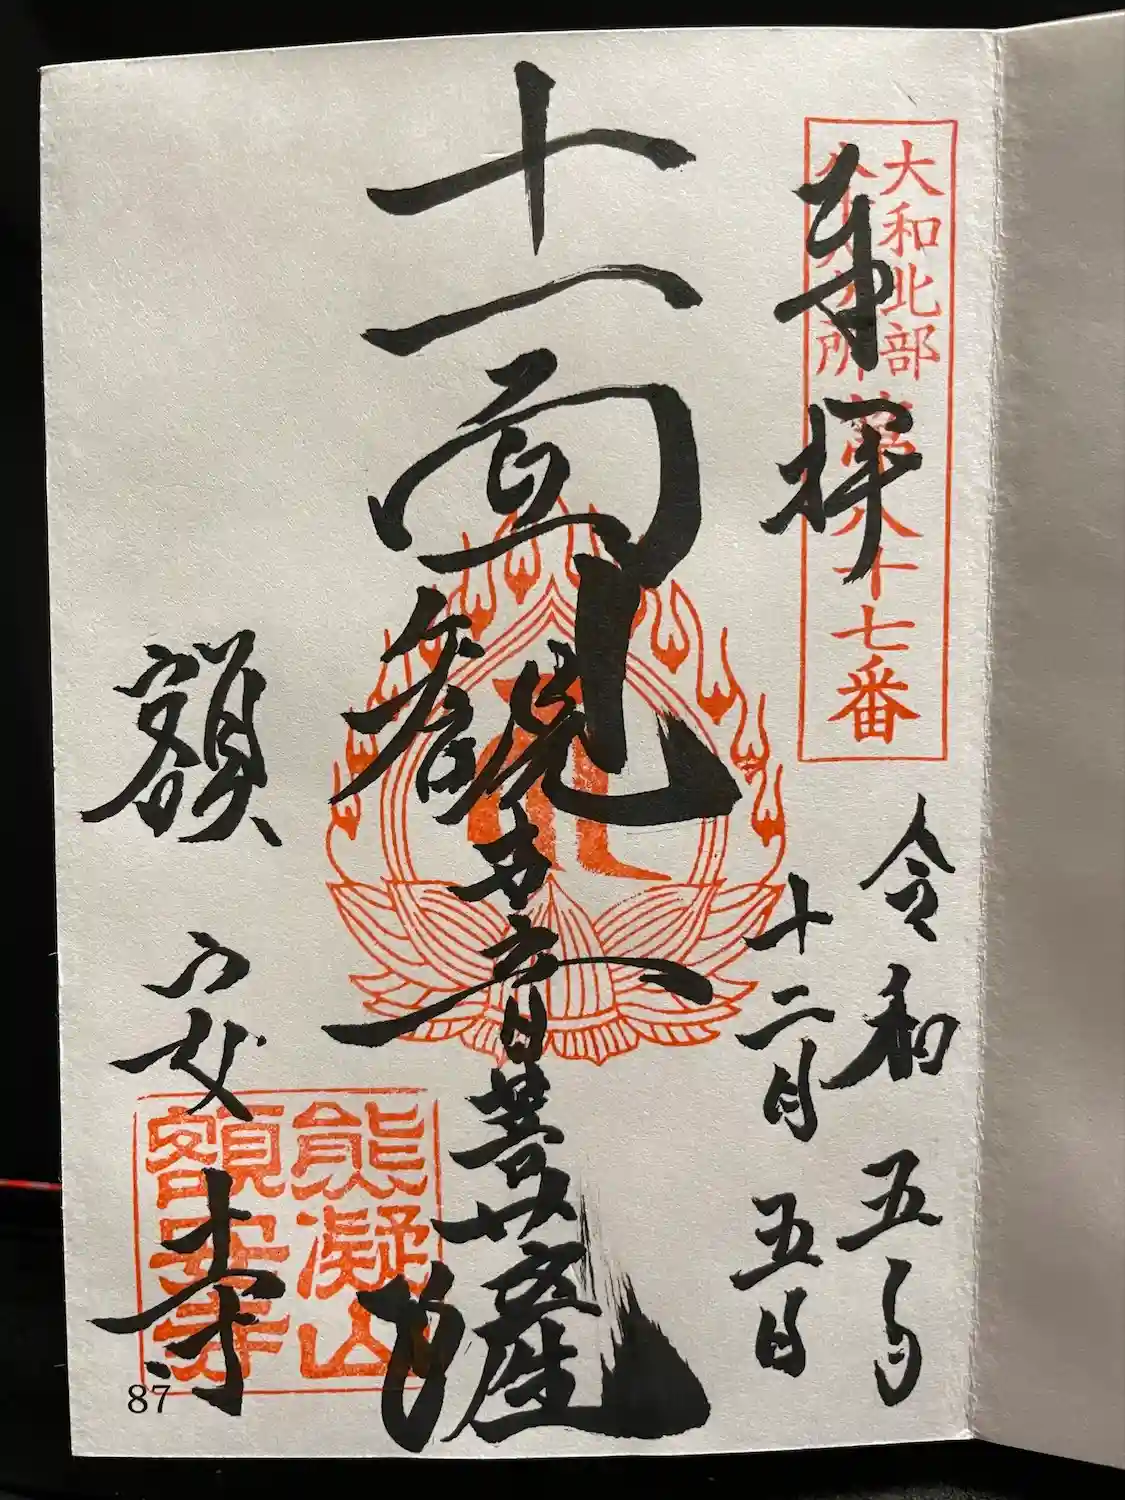 大和北部
八十八ヶ所第八十七番
奉拝
令和五年
十二月五日
十一面観世音菩薩
額安寺
熊凝山
額安寺
87